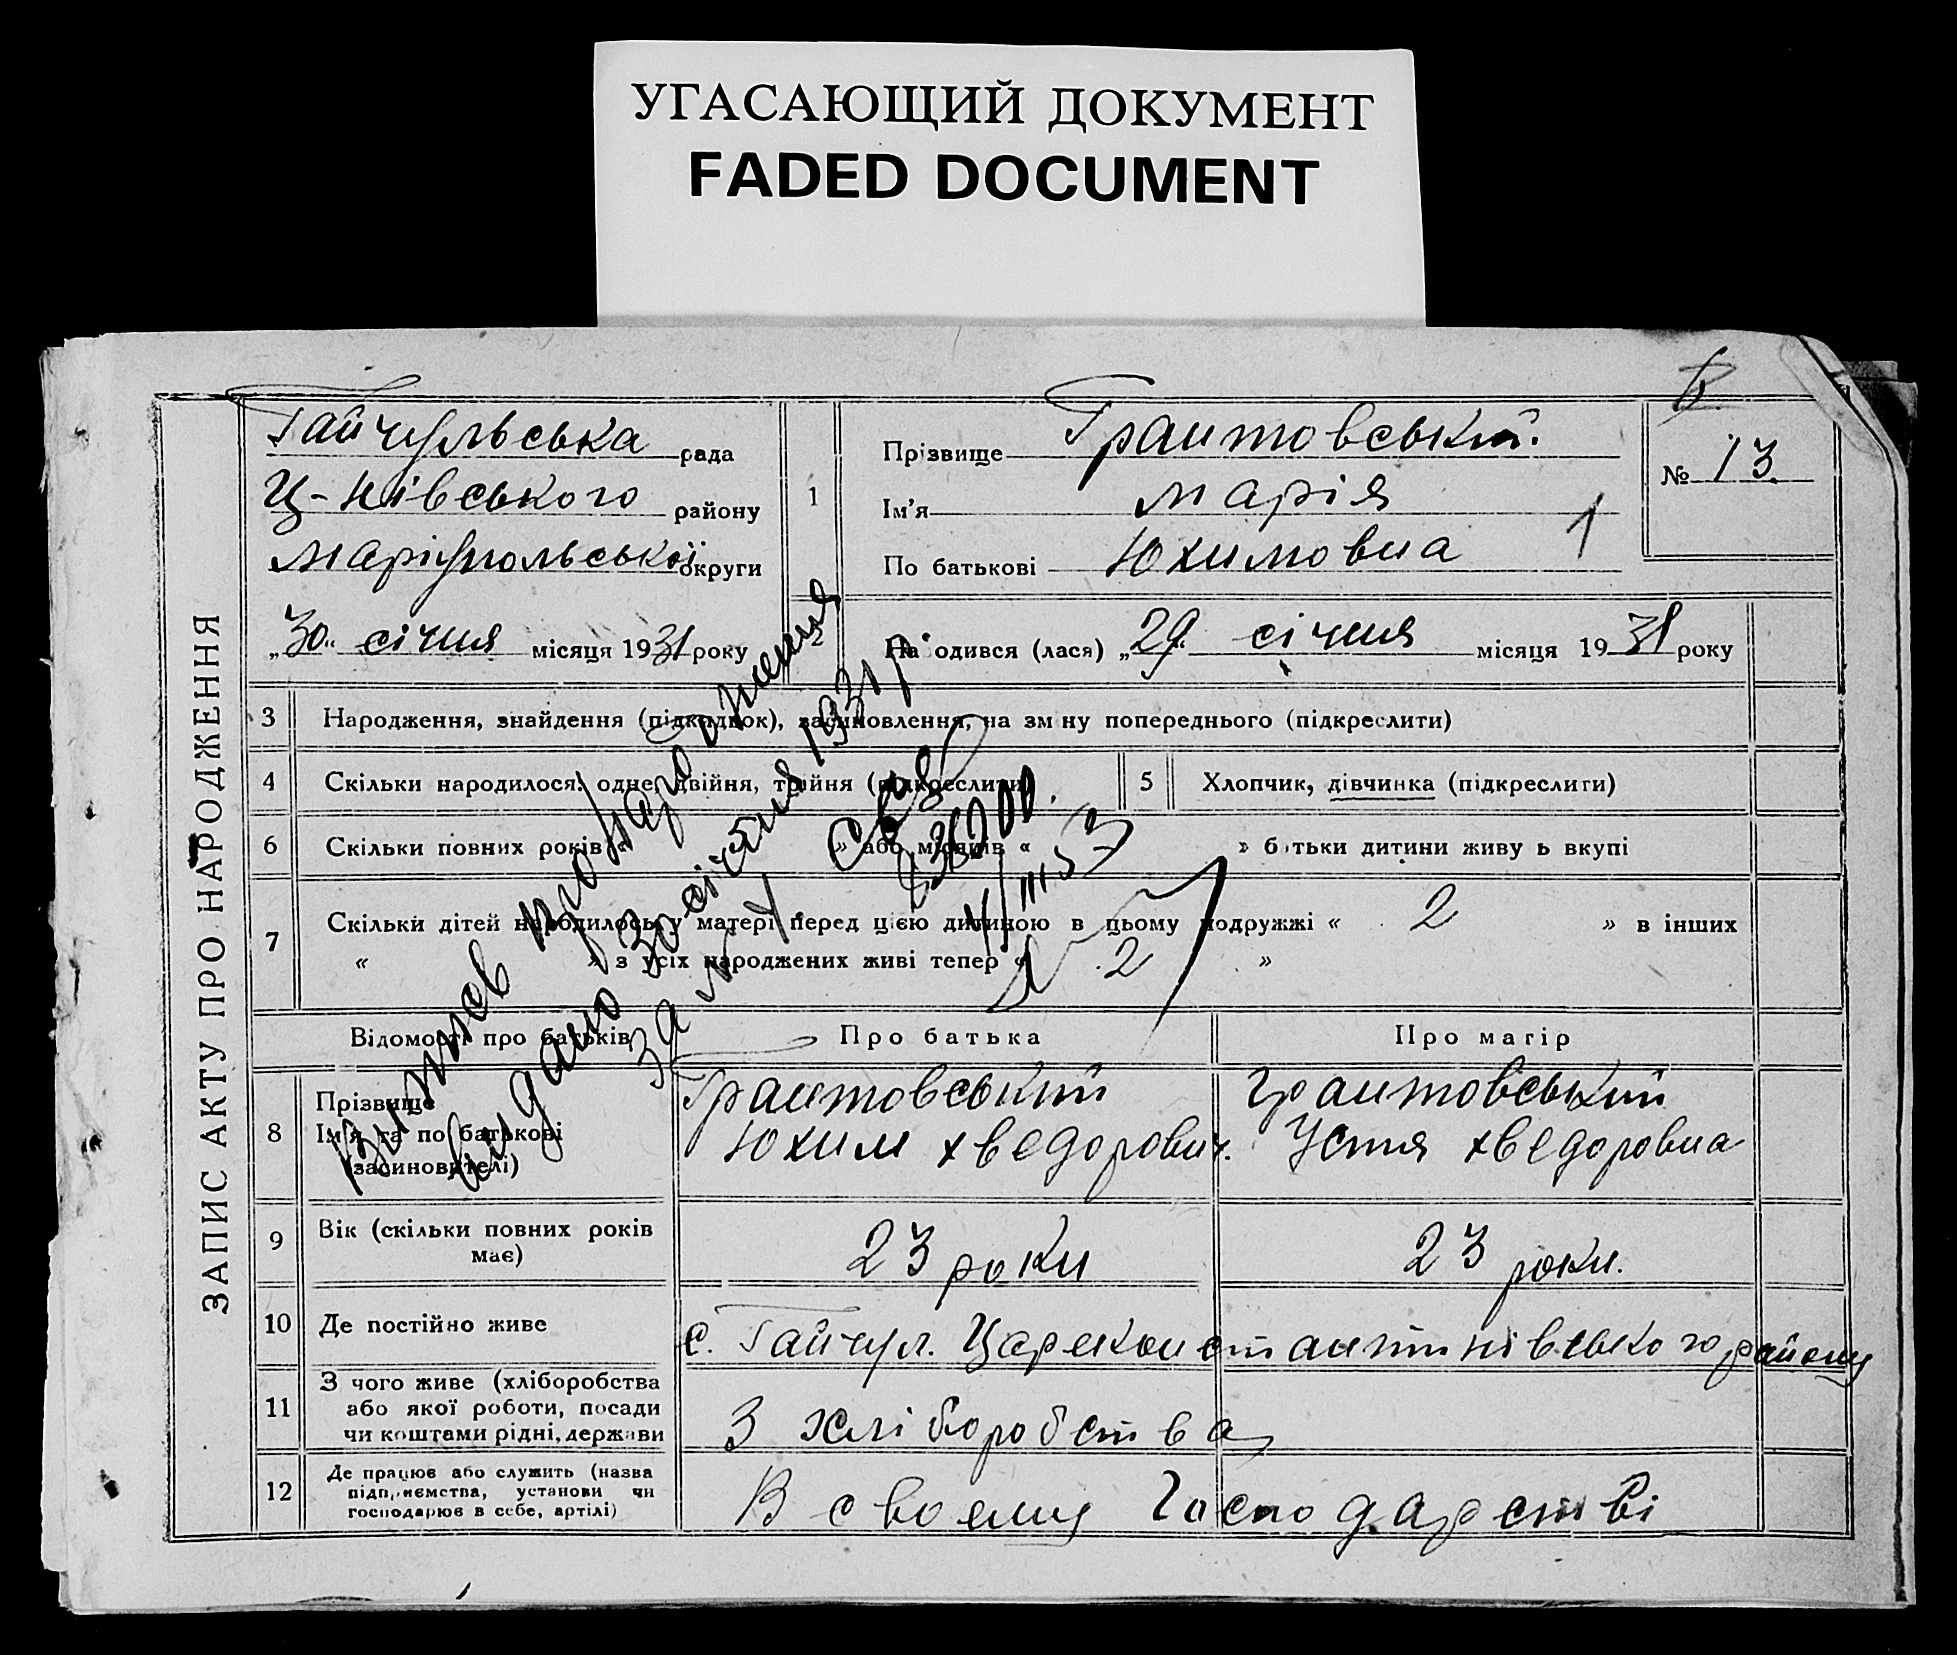 УГАСАЮЩИЙ ДОКУМЕНТ
FADED DOCUMENT
ЗАПИС АКТУ ПРО НАРОДЖЕННЯ
Гайчульська рада
Ц-нівського району
Маріупольської округи
„30“ січня місяця 1931 року
1
Прізвище Грантовський.
Ім'я Марія
По батькові Юхимовна
1
№ 13
2
На одився (лася) „29“ січня місяця 1931 року
3 Народження, знайдення (підкидьок), засиновлення, на зм ну попереднього (підкреслити)
4 Скільки народилося: одне, двійня, трійня (підкреслити)
5 Хлопчик, дівчинка (підкреслити)
6 Скільки повних років « » або місяців « » б тьки дитини живу ь вкупі
7 Скільки дітей народилось у матері перед цією дитиною в цьому подружжі « 2 » в інших
« » з усіх народжених живі тепер « 2 »
Витяг про народження
видано 30 січня 1931 р
за № 1
Відомості про батьків
Про батька
Про матір
8 Прізвище
Ім'я та по батькові
(засиновителі)
Грантовський
Юхим Хведорович.
Грантовський
Устя Хведоровна
9 Вік (скільки повних років
має)
23 роки
23 роки.
10 Де постійно живе
с. Гайчул. Царекостантинівського району
11 З чого живе (хліборобства
або якої роботи, посади
чи коштами рідні, держави
З хліборобства
12 Де працює або служить (назва
підприємства, установи чи
господарює в себе, артілі)
В своему господарстві